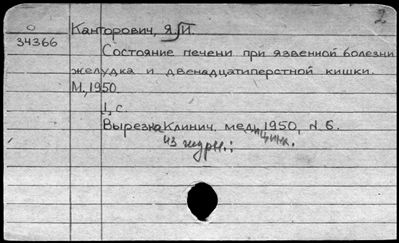 2
О
34366
Канторович, Я.И.
Состояние печени при язвенной болезни
желудка и двенадцатиперстной кишки.
М., 1950.
1, с.
Вырезка Клинич. медицина. 1950, N 6.
из журн.: